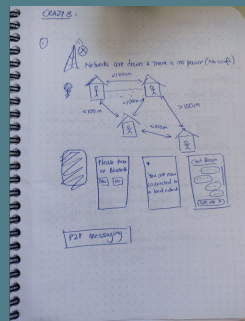 CRAZY 8:
Networks are down & there is no power (No wifi)
<100m
<100m
<100m
>100m
<100m
Please turn
on Bluetooth
You are now
connected to
a local network
Chat Room
P2P Messaging